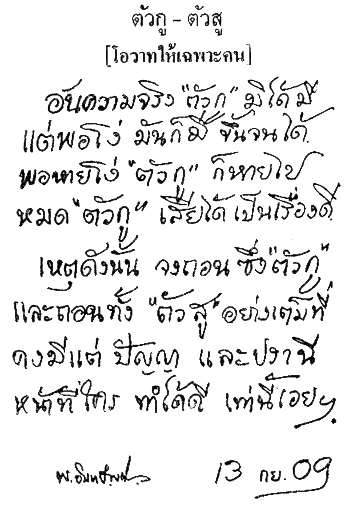 ตัวกู - ตัวสู
[โอวาทให้เฉพาะคน]
อันความจริง "ตัวกู" มิได้มี
แต่พอโง่ มันก็มี ขึ้นจนได้
พอหายโง่ "ตัวกู" ก็หายไป
หมด "ตัวกู" เสียได้ เป็นเรื่องดี
เหตุดังนั้น จงถอน ซึ่ง "ตัวกู"
และถอนทั้ง "ตัวสู" อย่างเต็มที่
คงมีแต่ ปัญญา และปรานี
หน้าที่ใคร ทำได้ดี เท่านี้เอยฯ
13 กย. 09